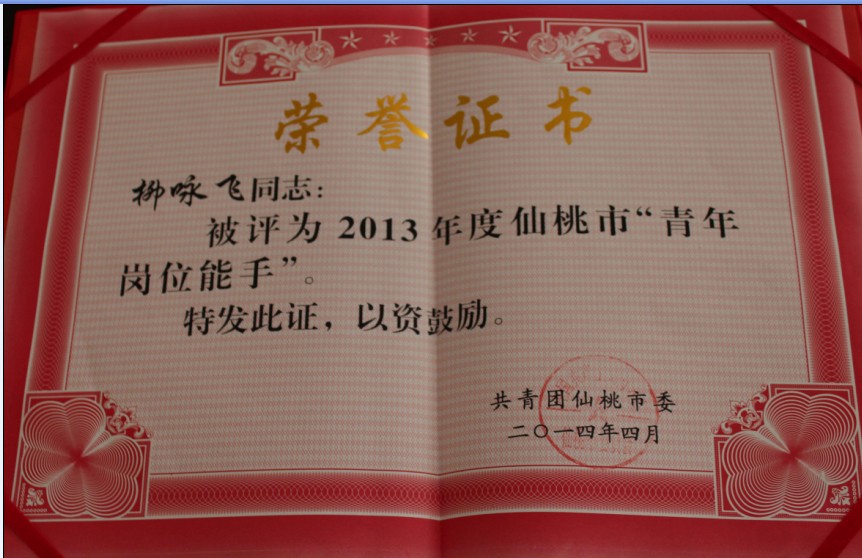 荣誉证书
柳咏飞同志：
被评为 2013 年度仙桃市“青年
岗位能手”。
特发此证，以资鼓励。
共青团仙桃市委
二〇一四年四月